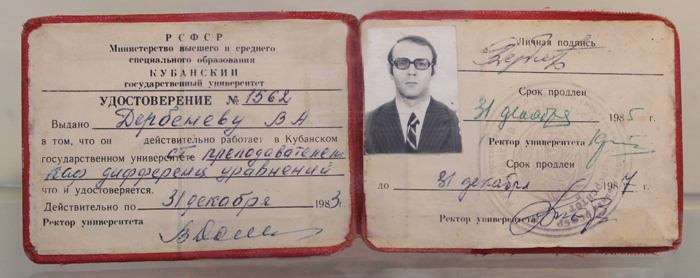 РСФСР
Министерство высшего и среднего
специального образования
КУБАНСКИЙ
государственный университет
УДОСТОВЕРЕНИЕ № 1562
Выдано Дербеневу В А
в том, что он действительно работает в Кубанском
государственном университете преподавателем
каф дифференц уравнений
что и удостоверяется.
Действительно по 31 декабря 1983г.
Ректор университета
Личная подпись
Срок продлен
31 декабря 1985г
Ректор университета
Срок продлен
до 31 декабря 1987г.
Ректор университета